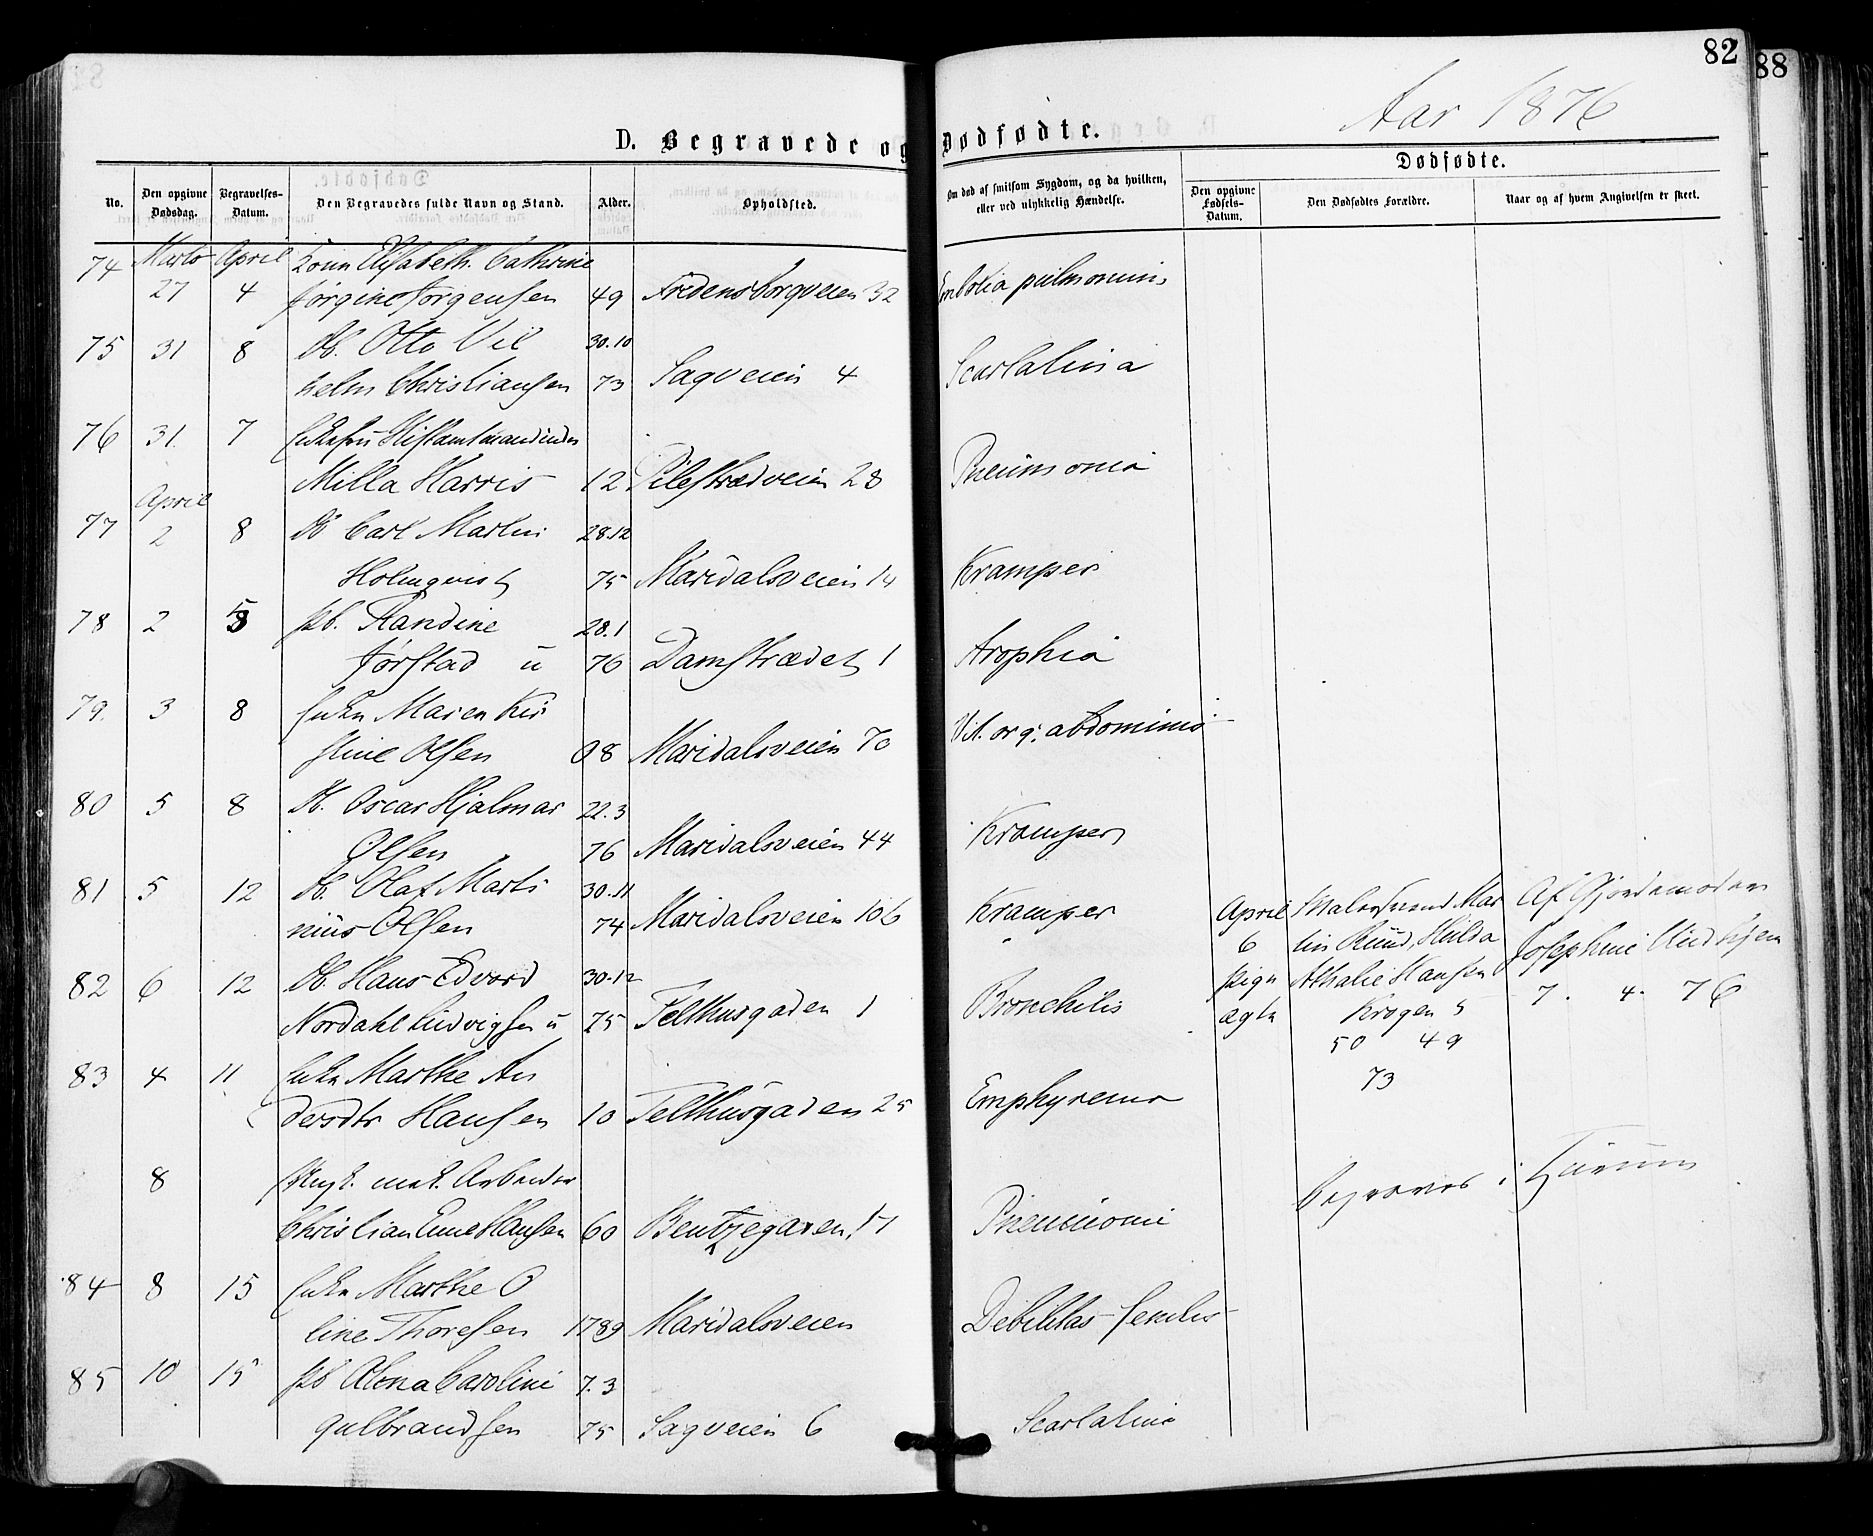 82
88
Aar 1876
D. Begravede og Dødfødte.
Dødfødte.
No.
Den opgivne Dødsdag.
Begravelses-Datum.
Den Begravedes fulde Navn og Stand.
Alder.
Opholdsted.
Om død af smitsom Sygdom, og da hvilken, eller ved ulykkelig Hændelse.
Den opgivne Fødsels-Datum.
Den Dødfødtes Forældre.
Naar og af hvem Angivelsen er skeet.
74 Marts April Elisabeth Cathrine
27 4 Jørgine Jørgensen 49 Fredensborgveien 32 Embolia pulmonum
75 31 8 Db. Otto Vil 30.10
helm Christiansen 73 Sagveien 4 Scarlatina
76 31. 7
Milla Harris 12 Pilestrædveien 28 Pneumonia
April
77 2 8 Db Carl Martin 28.12
Holmqvist 75 Maridalsveien 14 Kramper
78 2 8 pb. Randine 28.1
Jørstad u 76 Damstrædet 1 Atrophia
79. 3 8 Enken Maren Kir
stine Olsen 08 Maridalsveien 70 Vit. org. abdominis
80 5 8 Db. Oscar Hjalmar 22.3
Olsen 76 Maridalsveien 44 Kramper
81 5 12 Db. Olaf Marti 30.11
nius Olsen 74 Maridalsveien 106 Kramper
April Malersvend Mar Af Gjordemoderen
6 tin Ruud, Hulda Josephine
82 6 12 Db. Hans Edvard 30.12
Pige Athalie Hansen 7. 4. 76
Nordahl Ludvigsen u 75 Telthusgaden 1 Bronchitis
ægte Krogen 5
50 49
73
83 4 11 Enken Marthe An
dersdtr Hansen 10 Telthusgaden 25 Emphysema
8 Arbeider
Christian Hansen 60 Bentzegaden 17 Pneumoni
Begraves i
84 8 15 Enken Marthe O
line Thoresen 1789 Maridalsveien Debilitas senilis
85 10 15 pb Alma Caroline 7.3
Gulbrandsen 75 Sagveien 6 Scarlatina